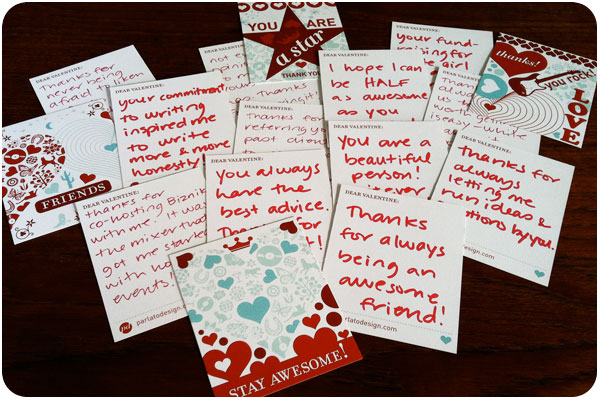 YOU ARE
a star
THANK YOU
DEAR VALENTINE:
Thanks for
never being
afraid
DEAR VALENTINE:
not
DEAR VALENTINE:
your commitment
to writing
inspired me
to write
more & more
honestly!
DEAR VALENTINE:
I hope I can
be HALF
as awesome
as you
DEAR VALENTINE:
your fund-
raising for
girl
thanks!
you rock!
LOVE
DEAR VALENTINE:
Thanks
DEAR VALENTINE:
Thanks for
referring
past
FRIENDS
DEAR VALENTINE:
thanks for
co-hosting Biznik
with me. It was
the mixer that
got me started
with
events.
parlatodesign.com
DEAR VALENTINE:
you always
have the
best advice.
DEAR VALENTINE:
You are a
beautiful
person!
DEAR VALENTINE:
Thanks for
always
letting me
run ideas &
by you.
DEAR VALENTINE:
Thanks
for always
being an
awesome
friend!
parlatodesign.com
STAY AWESOME!